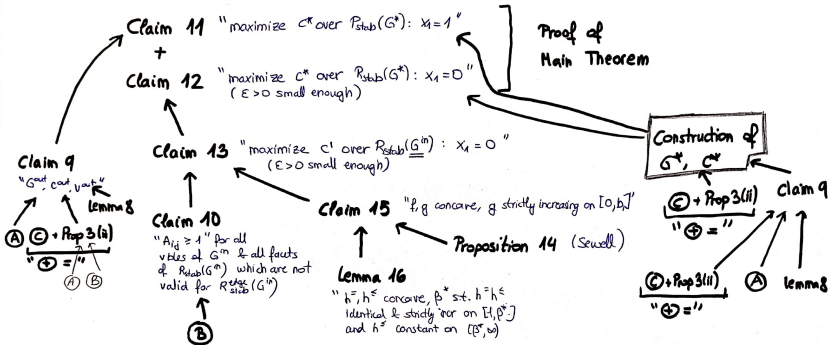 Claim 11 "maximize c* over Pstab(G*): x₁=1"
+
Claim 12 "maximize c* over Pstab(G*): x₁=0"
(ε>0 small enough)
Proof of
Main Theorem
Claim 13 "maximize c' over Pstab(Gⁱⁿ): x₁=0"
(ε>0 small enough)
Construction of
G*, c*
Claim 9
"Gᵒᵘᵗ, cᵒᵘᵗ, vᵒᵘᵗ"
Lemma 8
Ⓐ Ⓒ + Prop 3(ii)
"⊕ ="
Ⓐ Ⓑ
Claim 10
"Aᵢⱼ ≥ 1" for all
vtces of Gⁱⁿ & all facets
of Pstab(Gⁱⁿ) which are not
valid for Pstabᵉᵈᵍᵉ(Gⁱⁿ)
Ⓑ
Claim 15 "f, g concave, g strictly increasing on [0,b,]"
Proposition 14 (Sewell)
Lemma 16
"h⁼, h≤ concave, β* s.t. h⁼ h≤
identical & strictly incr on [1,β*]
and h≤ constant on [β*,∞)
Ⓒ + Prop 3(ii)
"⊕ ="
Claim 9
Ⓒ + Prop 3(ii)
"⊕ ="
Ⓐ
Lemma 8